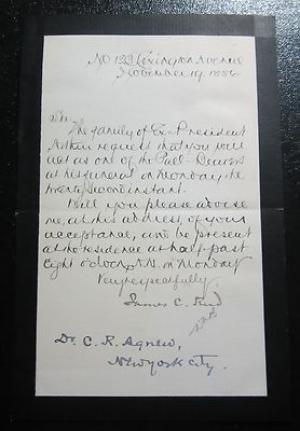 No 123 Lexington Avenue
November 19. 1886
Sir:
The family of Ex-President
Arthur request that you will
act as one of the Pall-Bearers
at his funeral on Monday the
twenty second instant.
Will you please advise
me, at his address, of your
acceptance, and be present
at his residence at half past
eight o'clock A.M. on Monday
Very respectfully
James C. Reed
Dr. C. R. Agnew,
New York City.